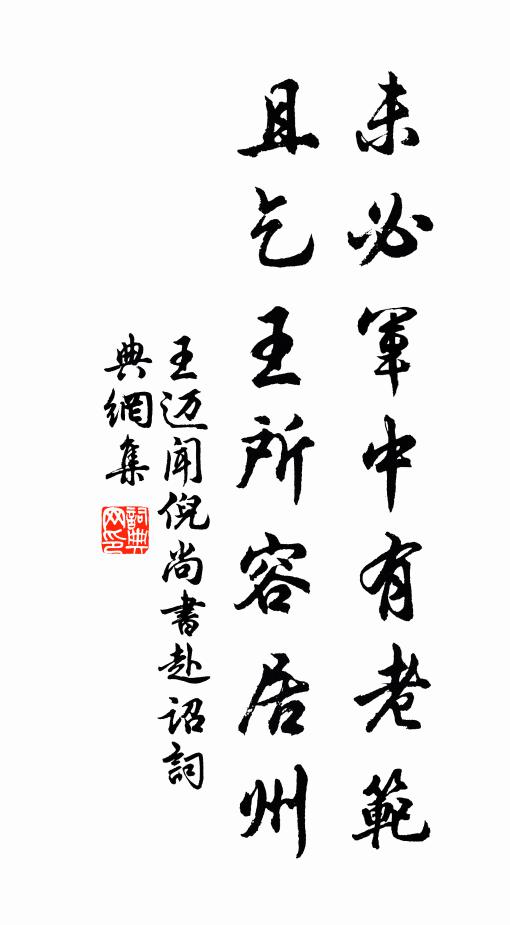 未必軍中有老範
且乞王所容居州
王迈闻倪尚書赴诏詞
典網集
詞典网印